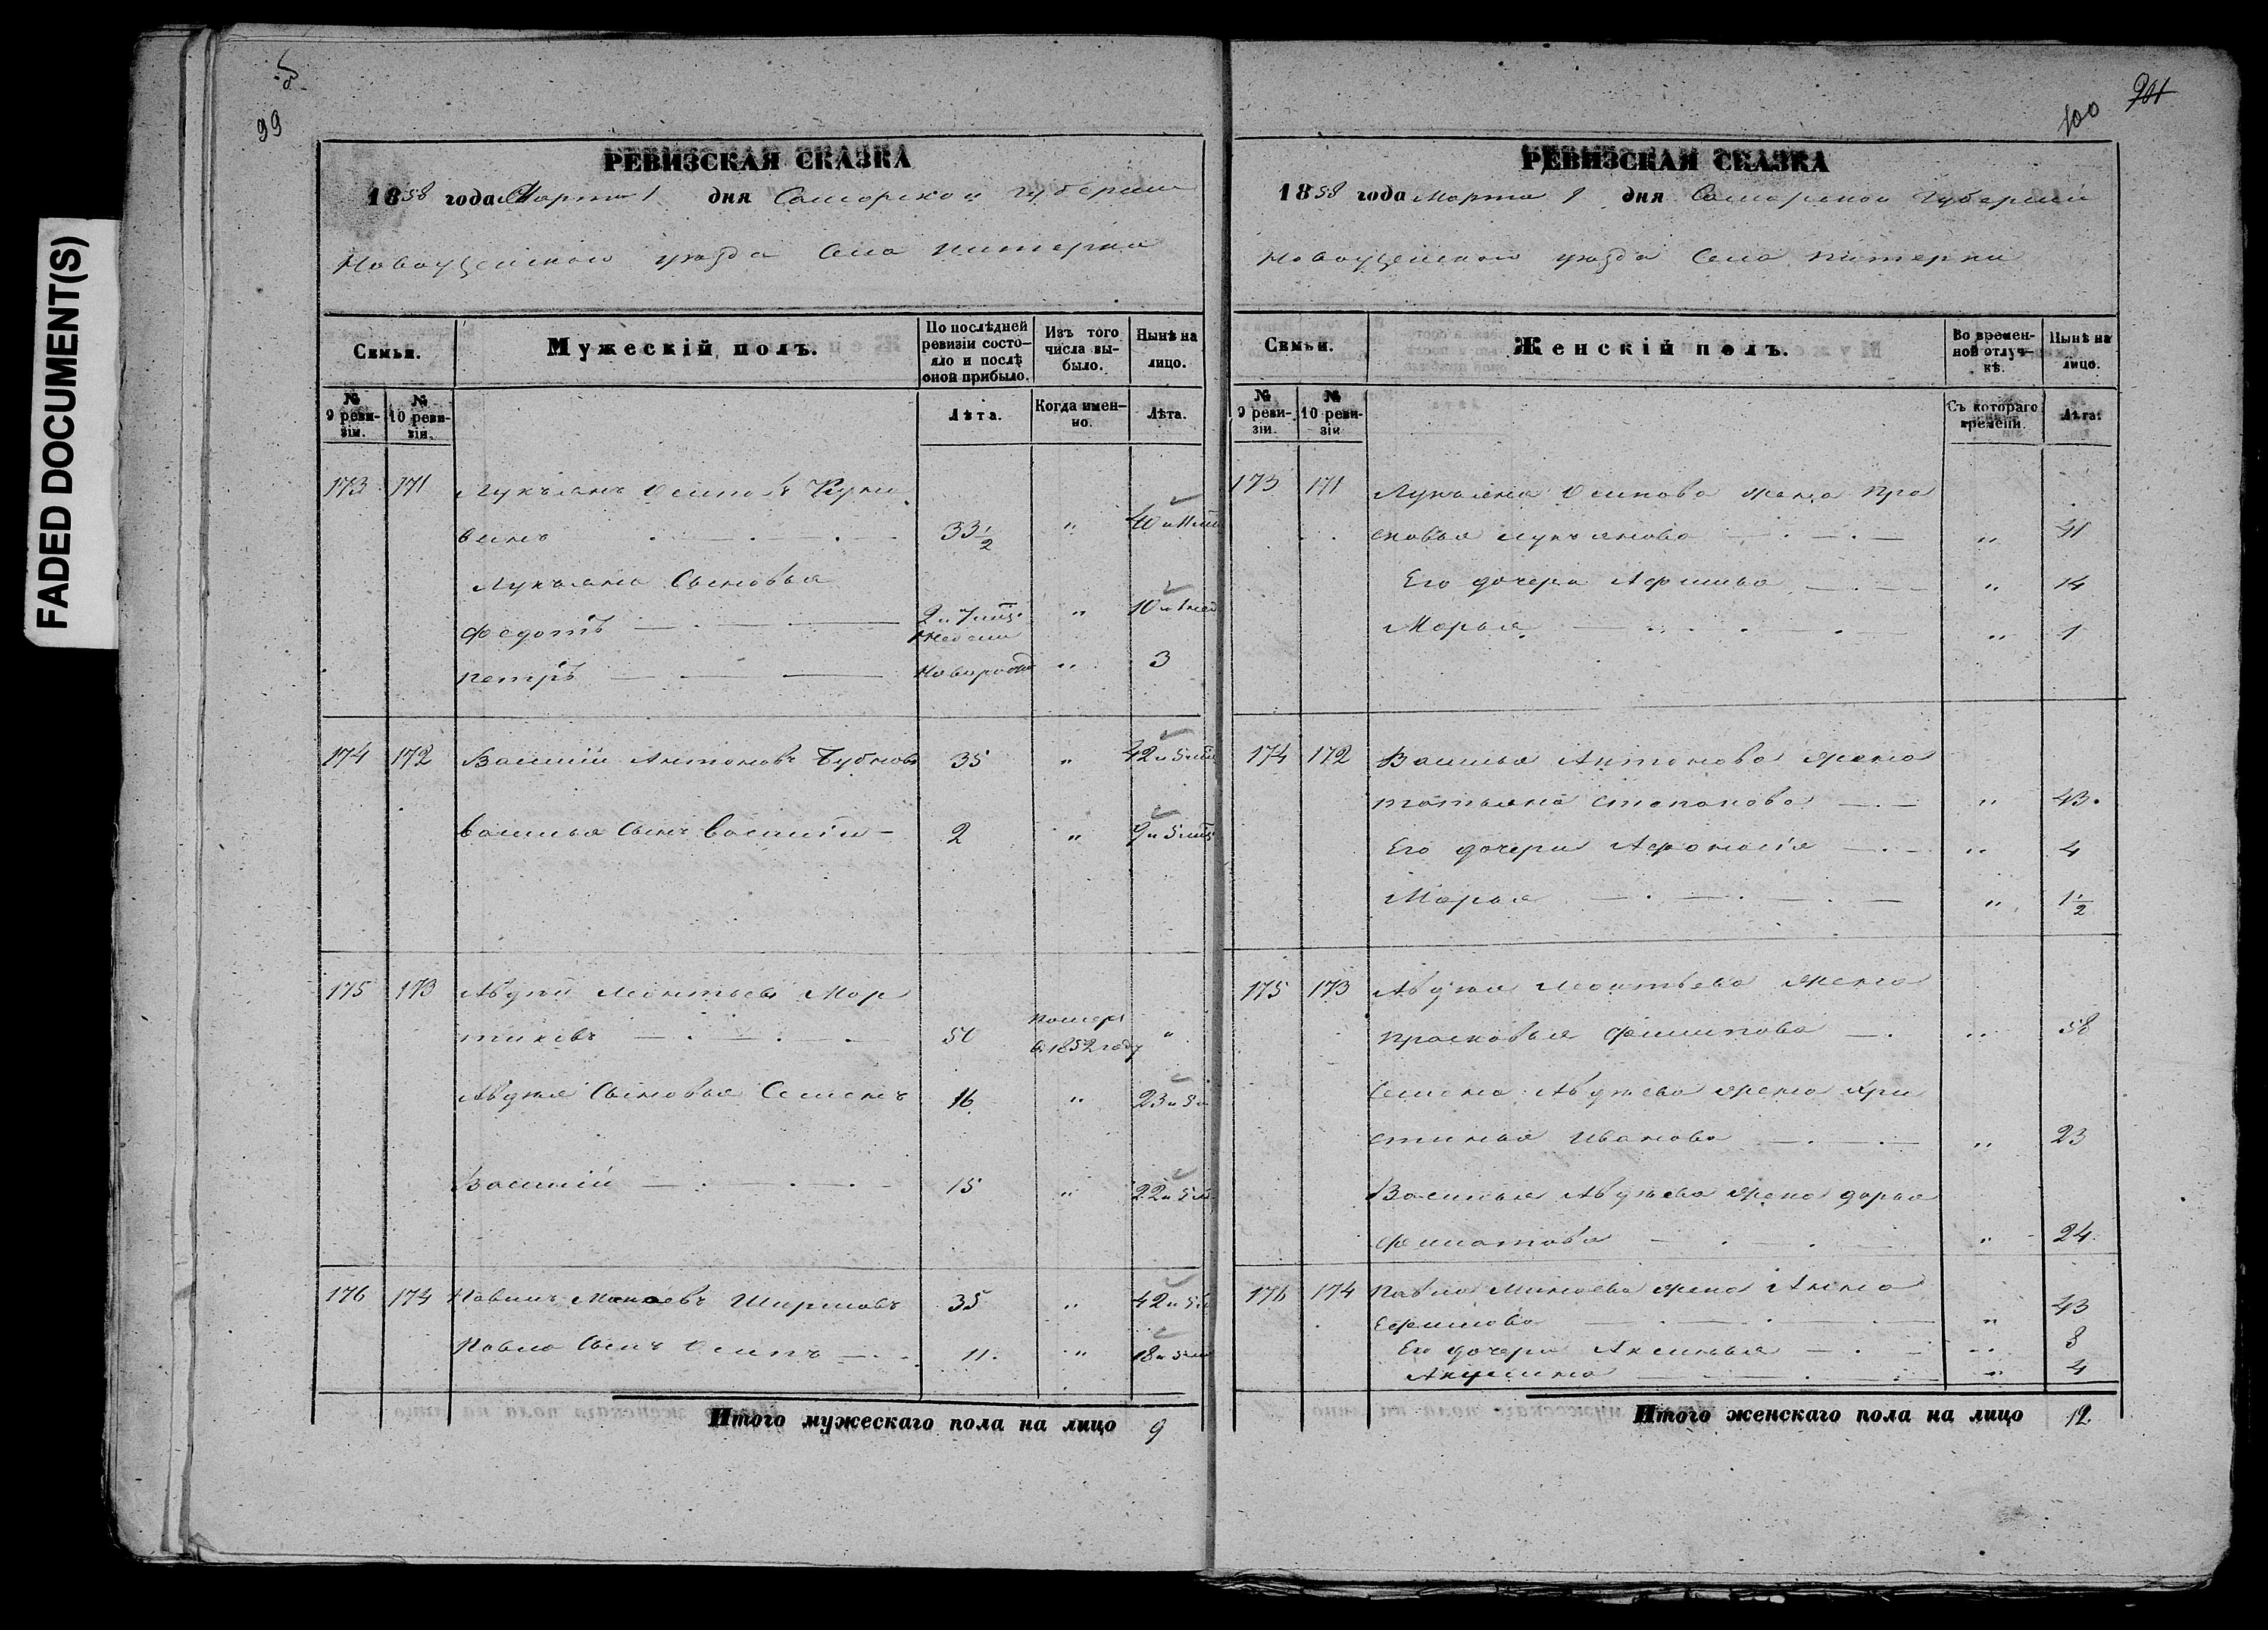 FADED DOCUMENT(S)
99
РЕВИЗСКАЯ СКАЗКА
1858 года Марта 1 дня Самарской губернии
Новоузенского уезда Села Питерки
Семьи.
Мужескій полъ.
По послѣдней ревизіи состояло и послѣ оной прибыло.
Изъ того числа выбыло.
Нынѣ на лицо.
№ 9 ревизіи.
№ 10 ревизіи.
Лѣта.
Когда именно.
Лѣта.
173 171 Лукьянъ Осиповъ
33 1/2 "
Лукьяна Сыновья
Федотъ "
Петръ " 3
174 172 Василий Антоновъ Бубновъ 35 "
Василья Сынъ Василій 2 "
175 173 Авдѣй Леонтьевъ Мар
тиновъ 50 померъ в 1852 году "
Авдѣя Сыновья Семенъ 16 "
Василій 15 "
176 174 Павелъ 35 "
Павла Сынъ Осипъ 11. "
Итого мужескаго пола на лицо 9
100
РЕВИЗСКАЯ СКАЗКА
1858 года Марта 1 дня Самарской Губернии
Новоузенского уезда Села Питерки
Семьи.
Женскій полъ.
Во временной отлучкѣ.
Нынѣ на лицо.
№ 9 ревизіи.
№ 10 ревизіи
Съ котораго времени.
Лѣта.
173 171 Лукьяна Осипова жена Пра
сковья Лукьянова " 41
Его дочери " 14
Марья " 1
174 172 Василья Антонова жена
Татьяна Степанова " 43
Его дочери Афонасія " 4
Марья " 1 1/2
175 173 Авдѣя Леонтьева жена
Прасковья Филипова " 58
Семена Авдѣева жена Хри
стинья Иванова " 23
Василья Авдѣева жена Дарья
Филатова " 24
176 174 Павла жена Анна
Ефимова " 43
Его дочери Аксинья " 8
Акулина " 4
Итого женскаго пола на лицо 12.